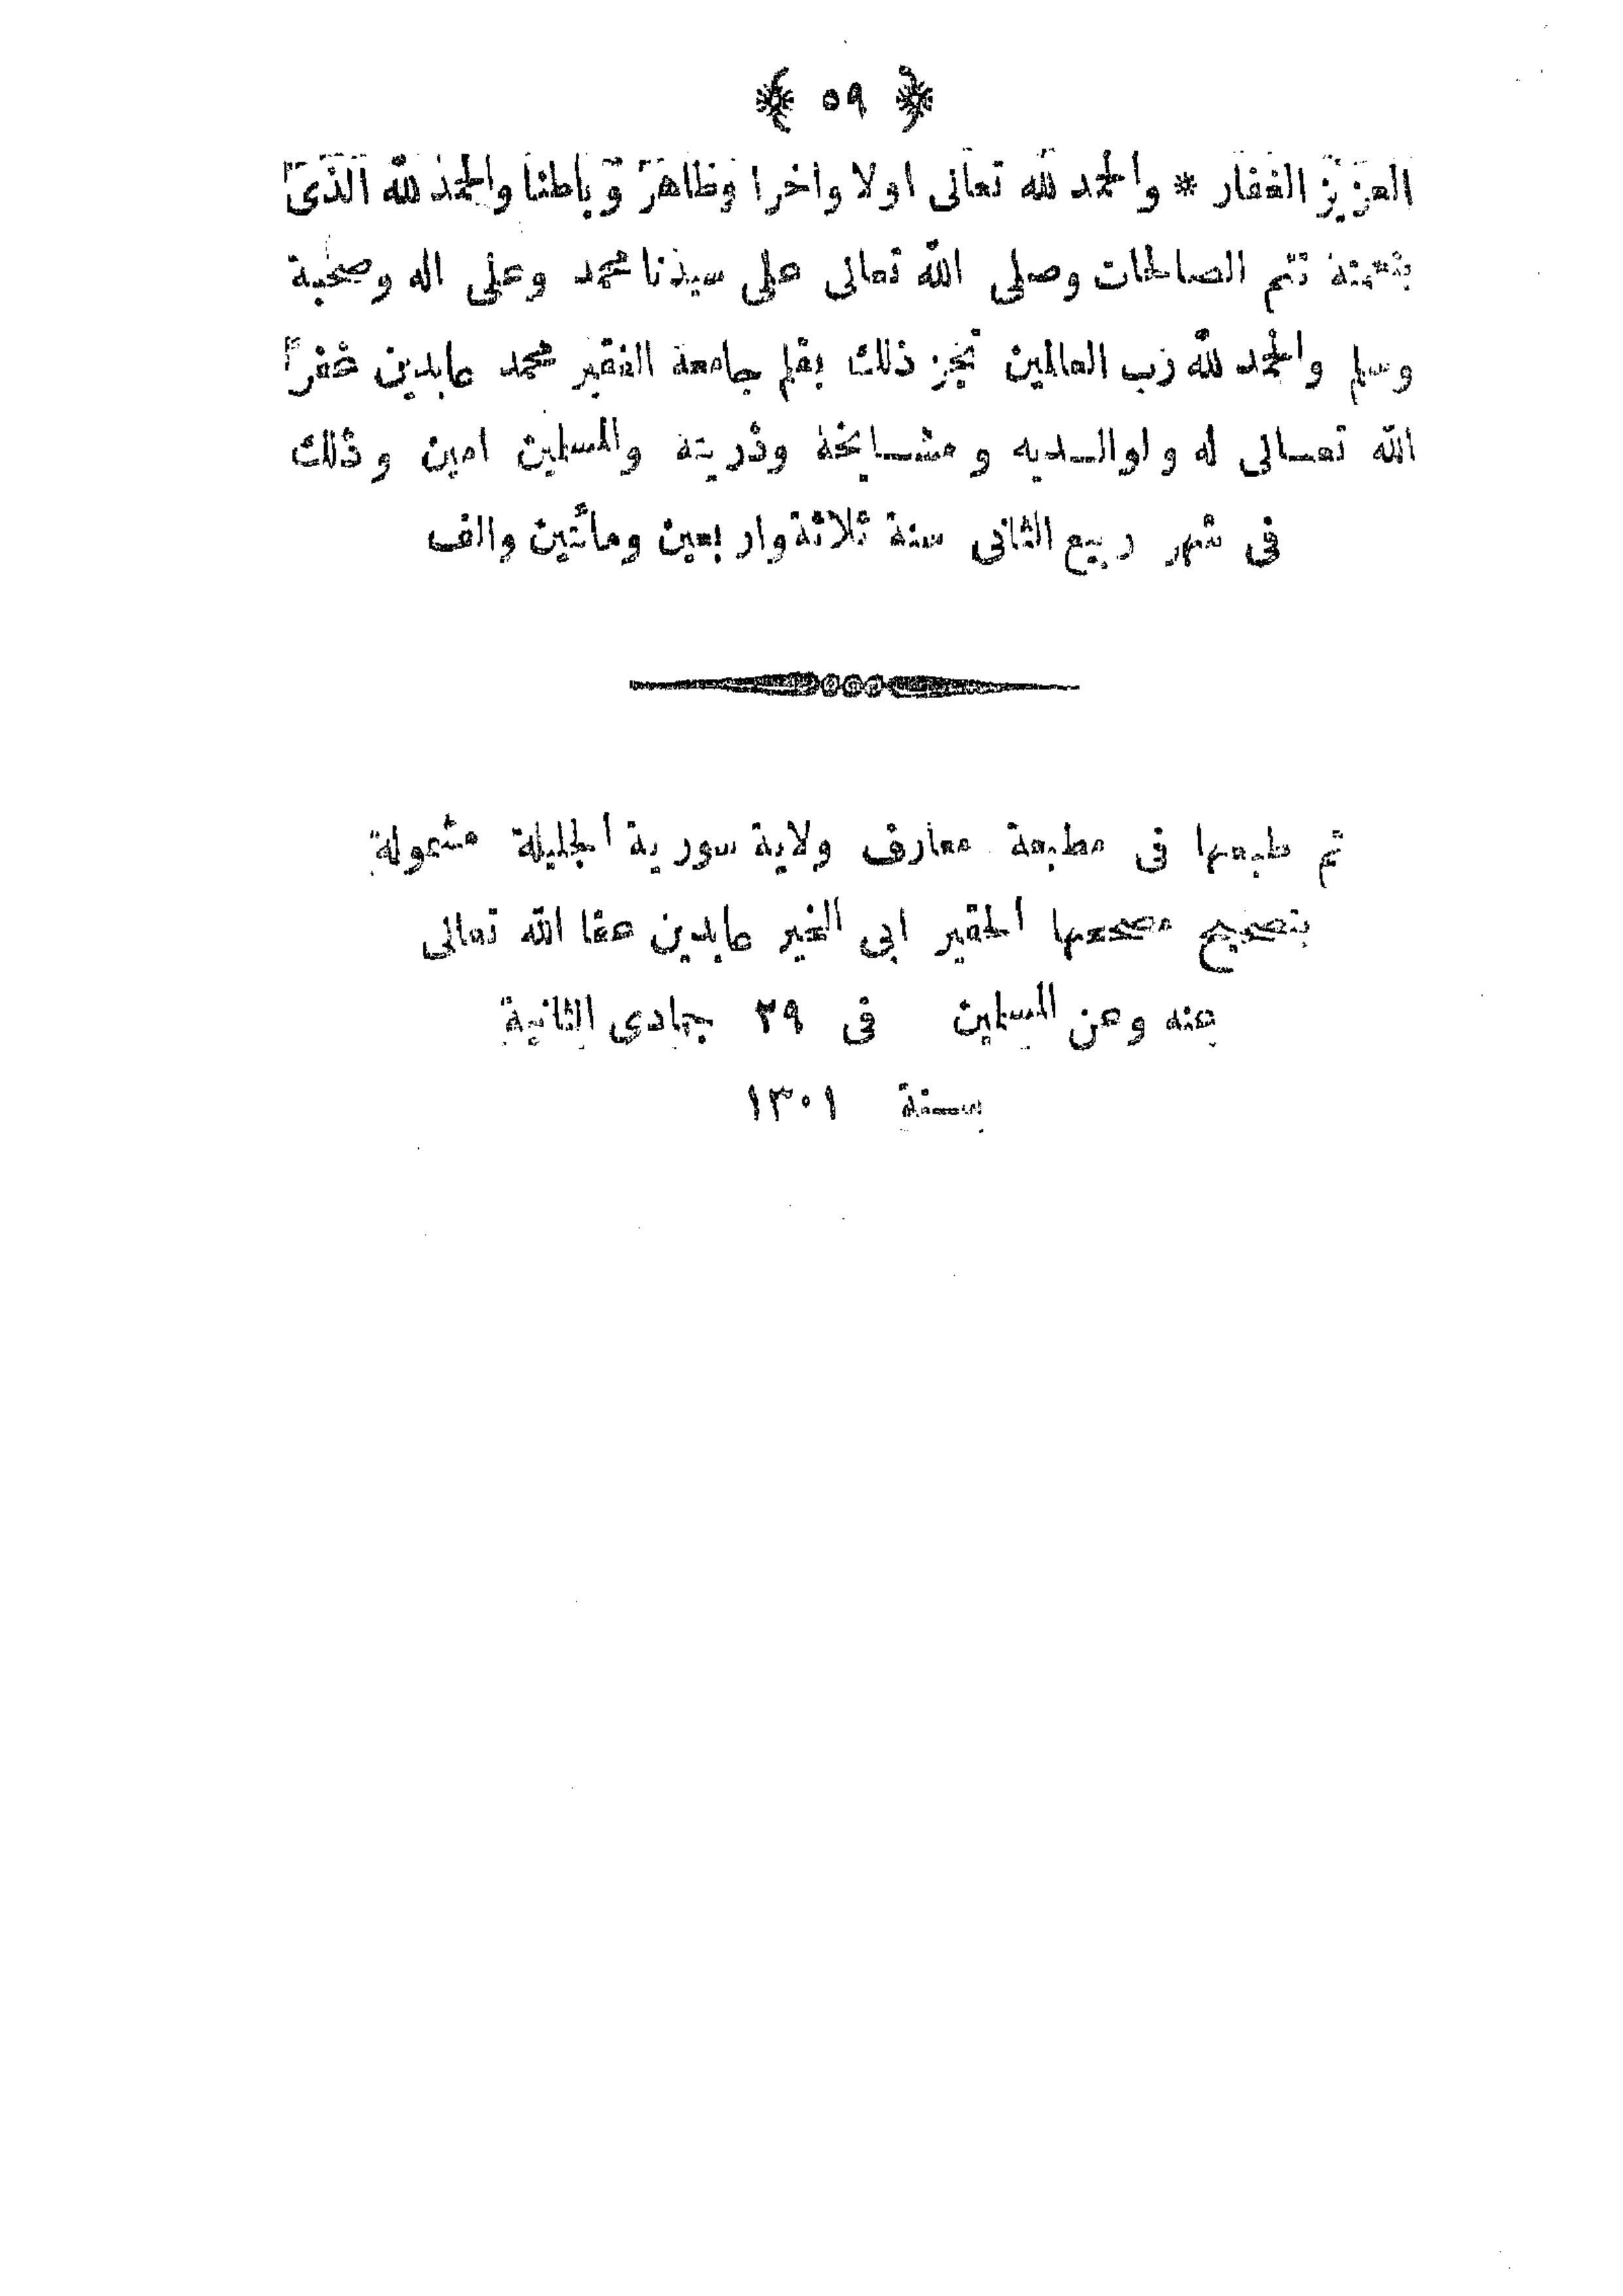 ﴿ ٥٩ ﴾
العزيز الغفار * والحمد لله تعالى اولا واخرا وظاهر وباطنا والحمد لله الذى
بنعمته تتم الصالحات وصلى الله تعالى على سيدنا محمد وعلى اله وصحبه
وسلم والحمد لله رب العالمين نجز ذلك بقلم جامعه الفقير محمد عابدين غفر
الله تعالى له ولوالديه ومشايخه وذريته والمسلمين امين وذلك
فى شهر ربيع الثانى سنة ثلاثة واربعين ومائتين والف
تم طبعها فى مطبعة معارف ولاية سورية الجليلة مشمولة
بتصحيح مصححها الحقير ابى الخير عابدين عفا الله تعالى
عنه وعن المسلمين فى ٢٩ جمادى الثانية
سنة ١٣٠١